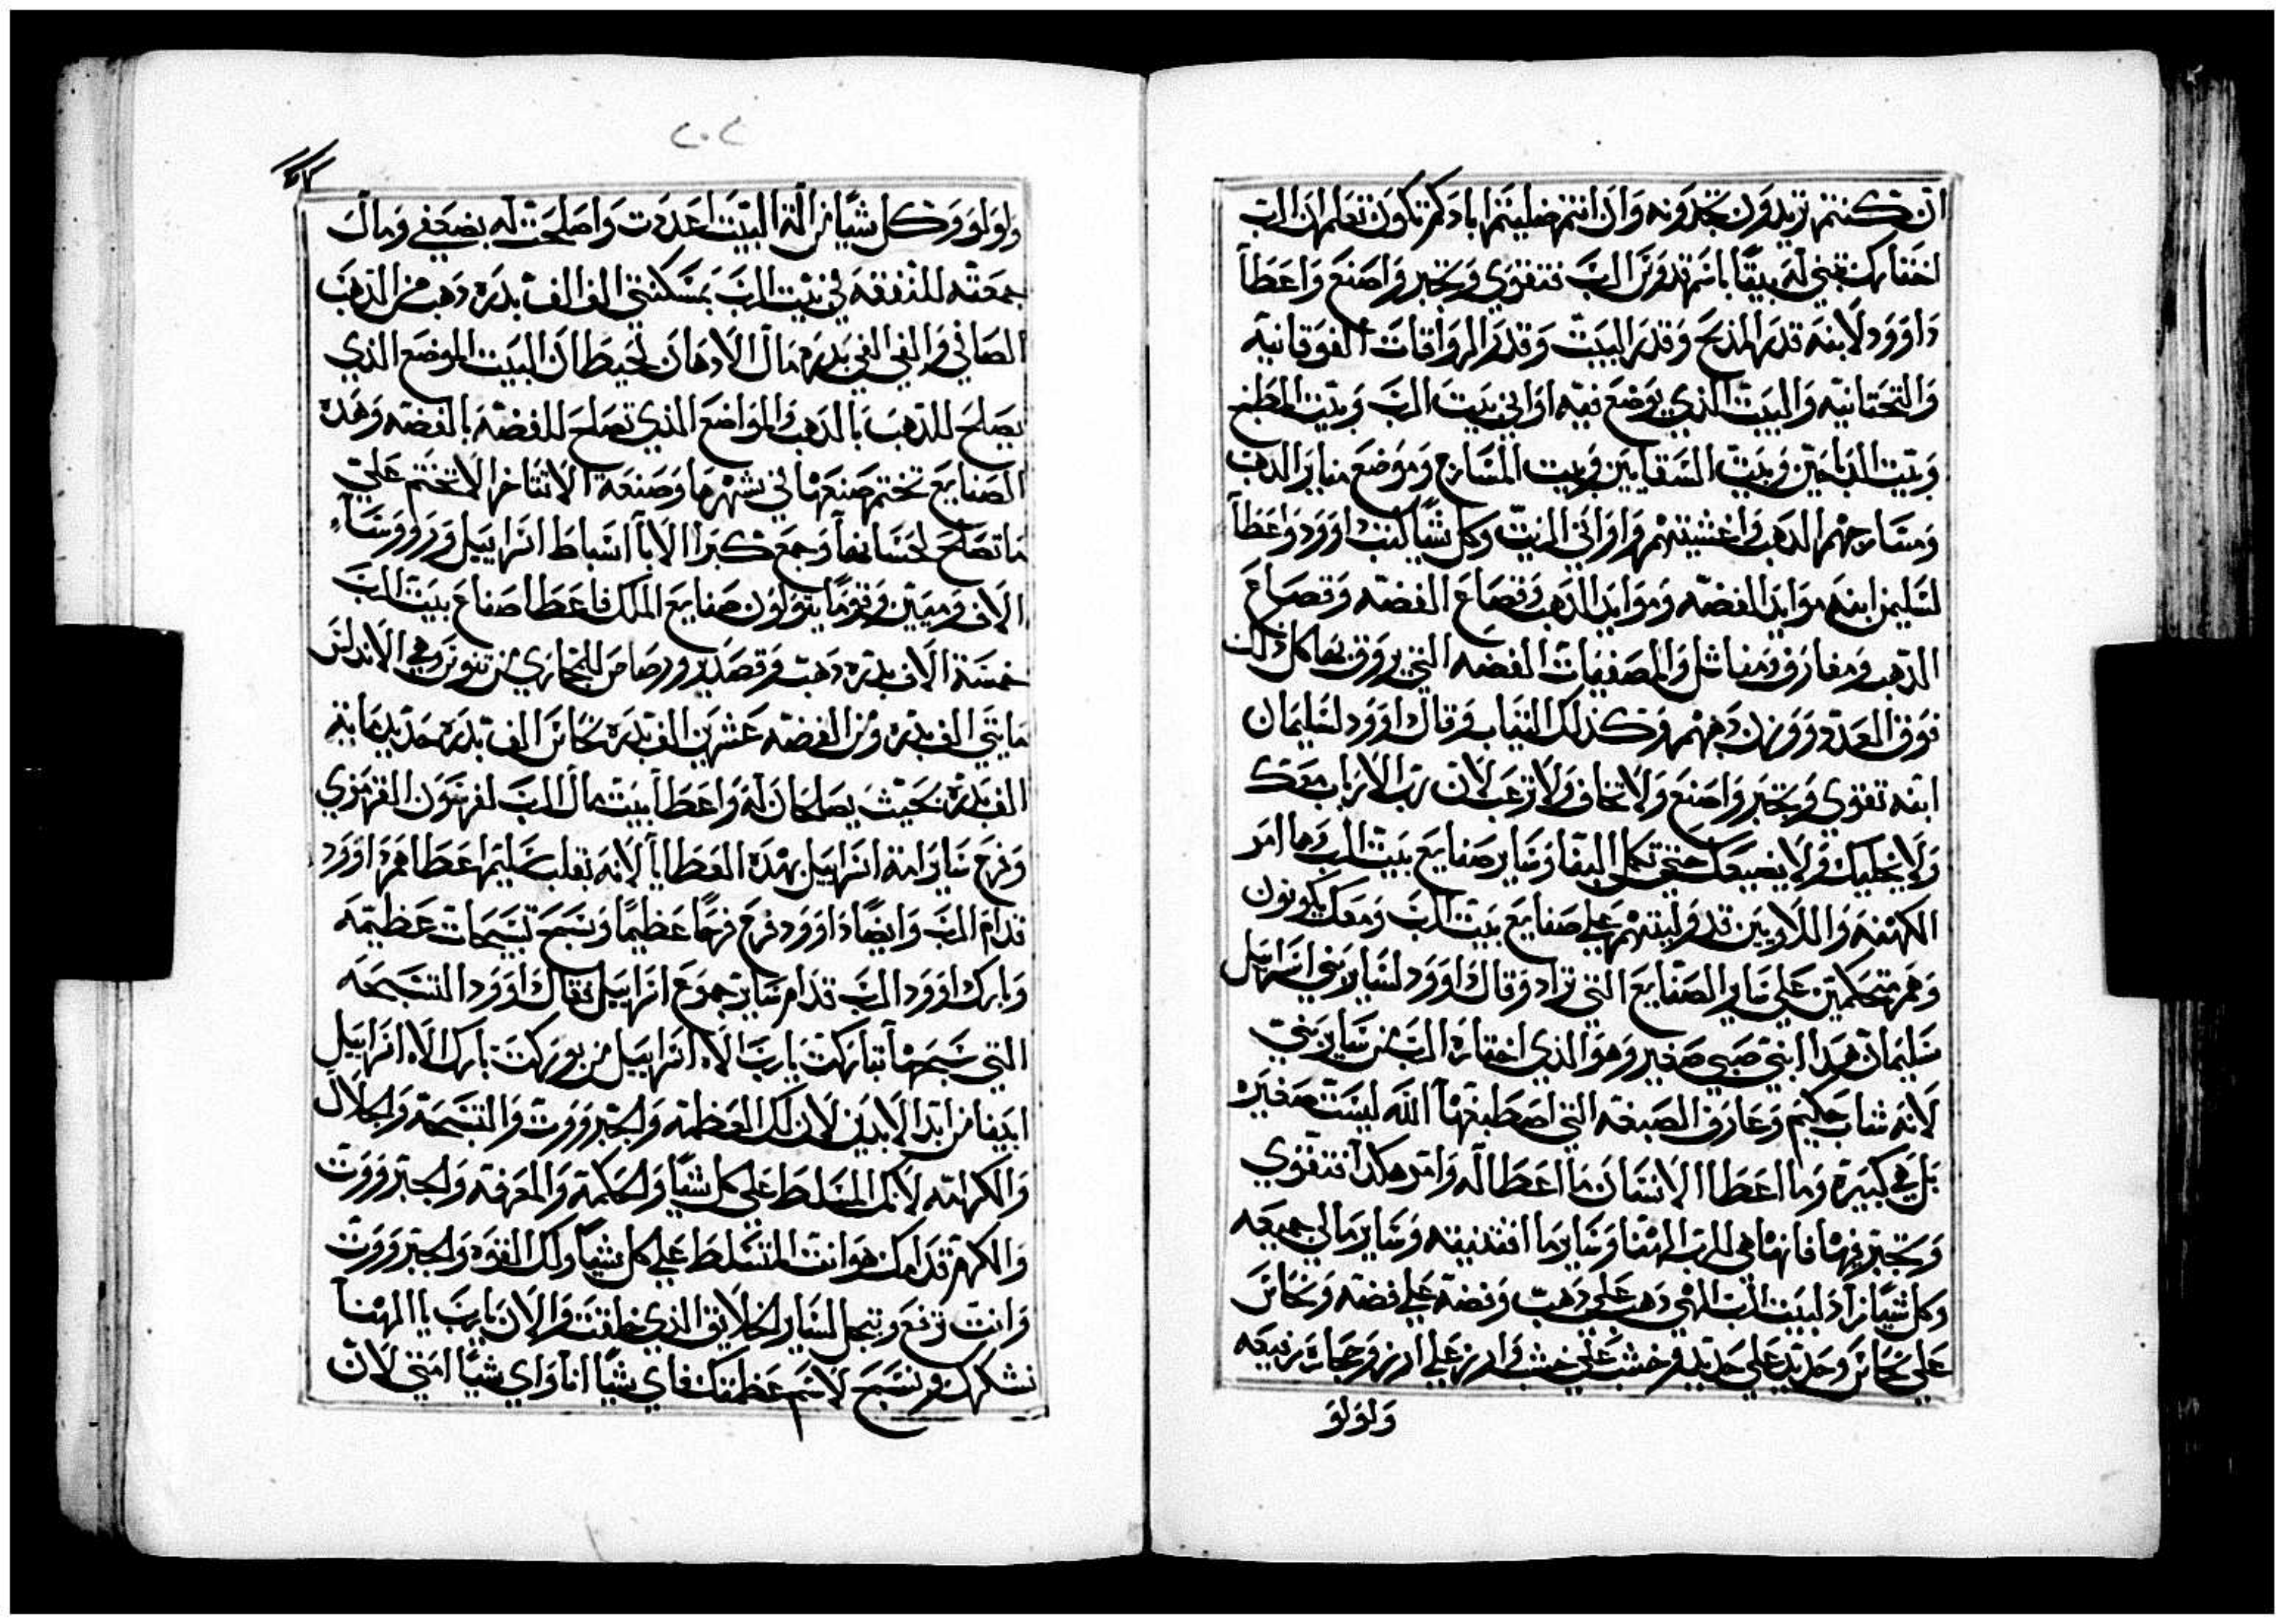 ان كنتم تريدون تجدونه وان انتم ضليتم ابادكم تكون تعلم ان الرب
اختارك تبني له بيتًا باسم قدوس الرب فتتقوي وتجبر واصنع واعطا
داوود لابنه قدر المذبح وقدر البيت وقدر الرواقات الفوقانيه
والتحتانيه والبيت الذي يوضع فيه اواني بيت الرب وبيت المطبخ
وبيت الدباحين وبيت السقايين وبيت المسارج وموضع مناير الدهب
ومسارجهم الدهب واغشيتهم واواني الزيت وكل شيًا كتب داوود واعطا
لسليمن ابنه موايد الفضه وموايد الدهب وقصاع الفضه وقصاع
الدهب ومغارف ومناشل والمصفيات الفضه التي يروق بها كل ذلك
فوق العدد ووزن دهبهم وكذلك الثياب وقال داوود لسليمان
ابنه تقوي وتجبر واصنع ولا تخاف ولا ترعب لان رب الارباب معك
ولا يخليك ولا يضيعك حتي تكمل البنا وساير صنايع بيت الرب وها امر
الكهنه واللاويين قد وليتهم علي صنايع بيت الرب ومعك يكونون
وهم متحكمين علي ساير الصنايع التي تراد وقال داوود لساير بني اسراييل
سليمان هدا ابني صبي صغير وهو الذي اختاره الرب من ساير بني
لانه شاب حكيم وعارف الصبغه التي اصطبغها الله ليست صغيره
بل هي كبيره وما اعطا الانسان ما اعطا اله وامر هكدا فتتقوي
وتجبر فيها فانها هي للرب الهنا وساير ما اقتنيته وساير مالي جميعه
وكل شيًا زاد لبيت الرب الهي دهب علي دهب وفضه علي فضه ونحاس
علي نحاس وحديد علي حديد وخشب علي خشب وارز علي ارز وحجاره رفيعه
ولولو
٢٠٢
ولولو وكل شيًا من الة البيت اعددت واصلحت له بضعفي ومال
جمعته للنفقه في بيت الرب بمسكنتي الف الف بدره دهب من الدهب
الصافي والفي الفي بدره مال الادهان لحيطان البيت الموضع الذي
يصلح للدهب بالدهب والمواضع الذي تصلح للفضه بالفضه وهده
الصنايع تختم صنعها في شهر ما وصنعة الاتتاخر الا تختم علي
ما تصلح لحسانها وجمع كبرا الابا اسباط اسراييل وروووسا
الاف وميين وقوما يتولون صنايع الملك فاعطا صناع بيت الرب
خمسة الاف بدره دهب وقصدير ورصاص للمجاري من تنوس وهي الاندلس
مايتي الف بدره ومن الفضه عشرين الف بدره نحاس الف بدره حديد ماية
الف بدره بحيث يصلح كان له واعطا بيت مال الرب لفرسون القرمزي
وفرح ساير امة اسراييل بهده العطايا لانه بقلب سليم اعطاهم داوود
قدام الرب وايضا داوود فرح فرحًا عظيمًا وسبح تسبحات عظيمه
وبارك داوود الرب قدام ساير جموع اسراييل فقال داوود التسبحه
التي سبحها تباركت يارب الاه اسراييل من بوركت بارك الاه اسراييل
ابينا من ابد الابدين لان لك العظمه والجبرووت والتسبحه والجلال
والكرامه لانك المسلط علي كل شيًا والحكمه والمعرفه والجبرووت
والكرم قدامك هو انت المتسلط علي كل شيًا ولك القوه والجبرووت
وانت ترفع وتبجل لساير الخلايق الذي خلقت والان يارب يا الهنا
نشكرك ونسبح لاسم عظمتك فاي شيًا انا واي شيًا امتي لان